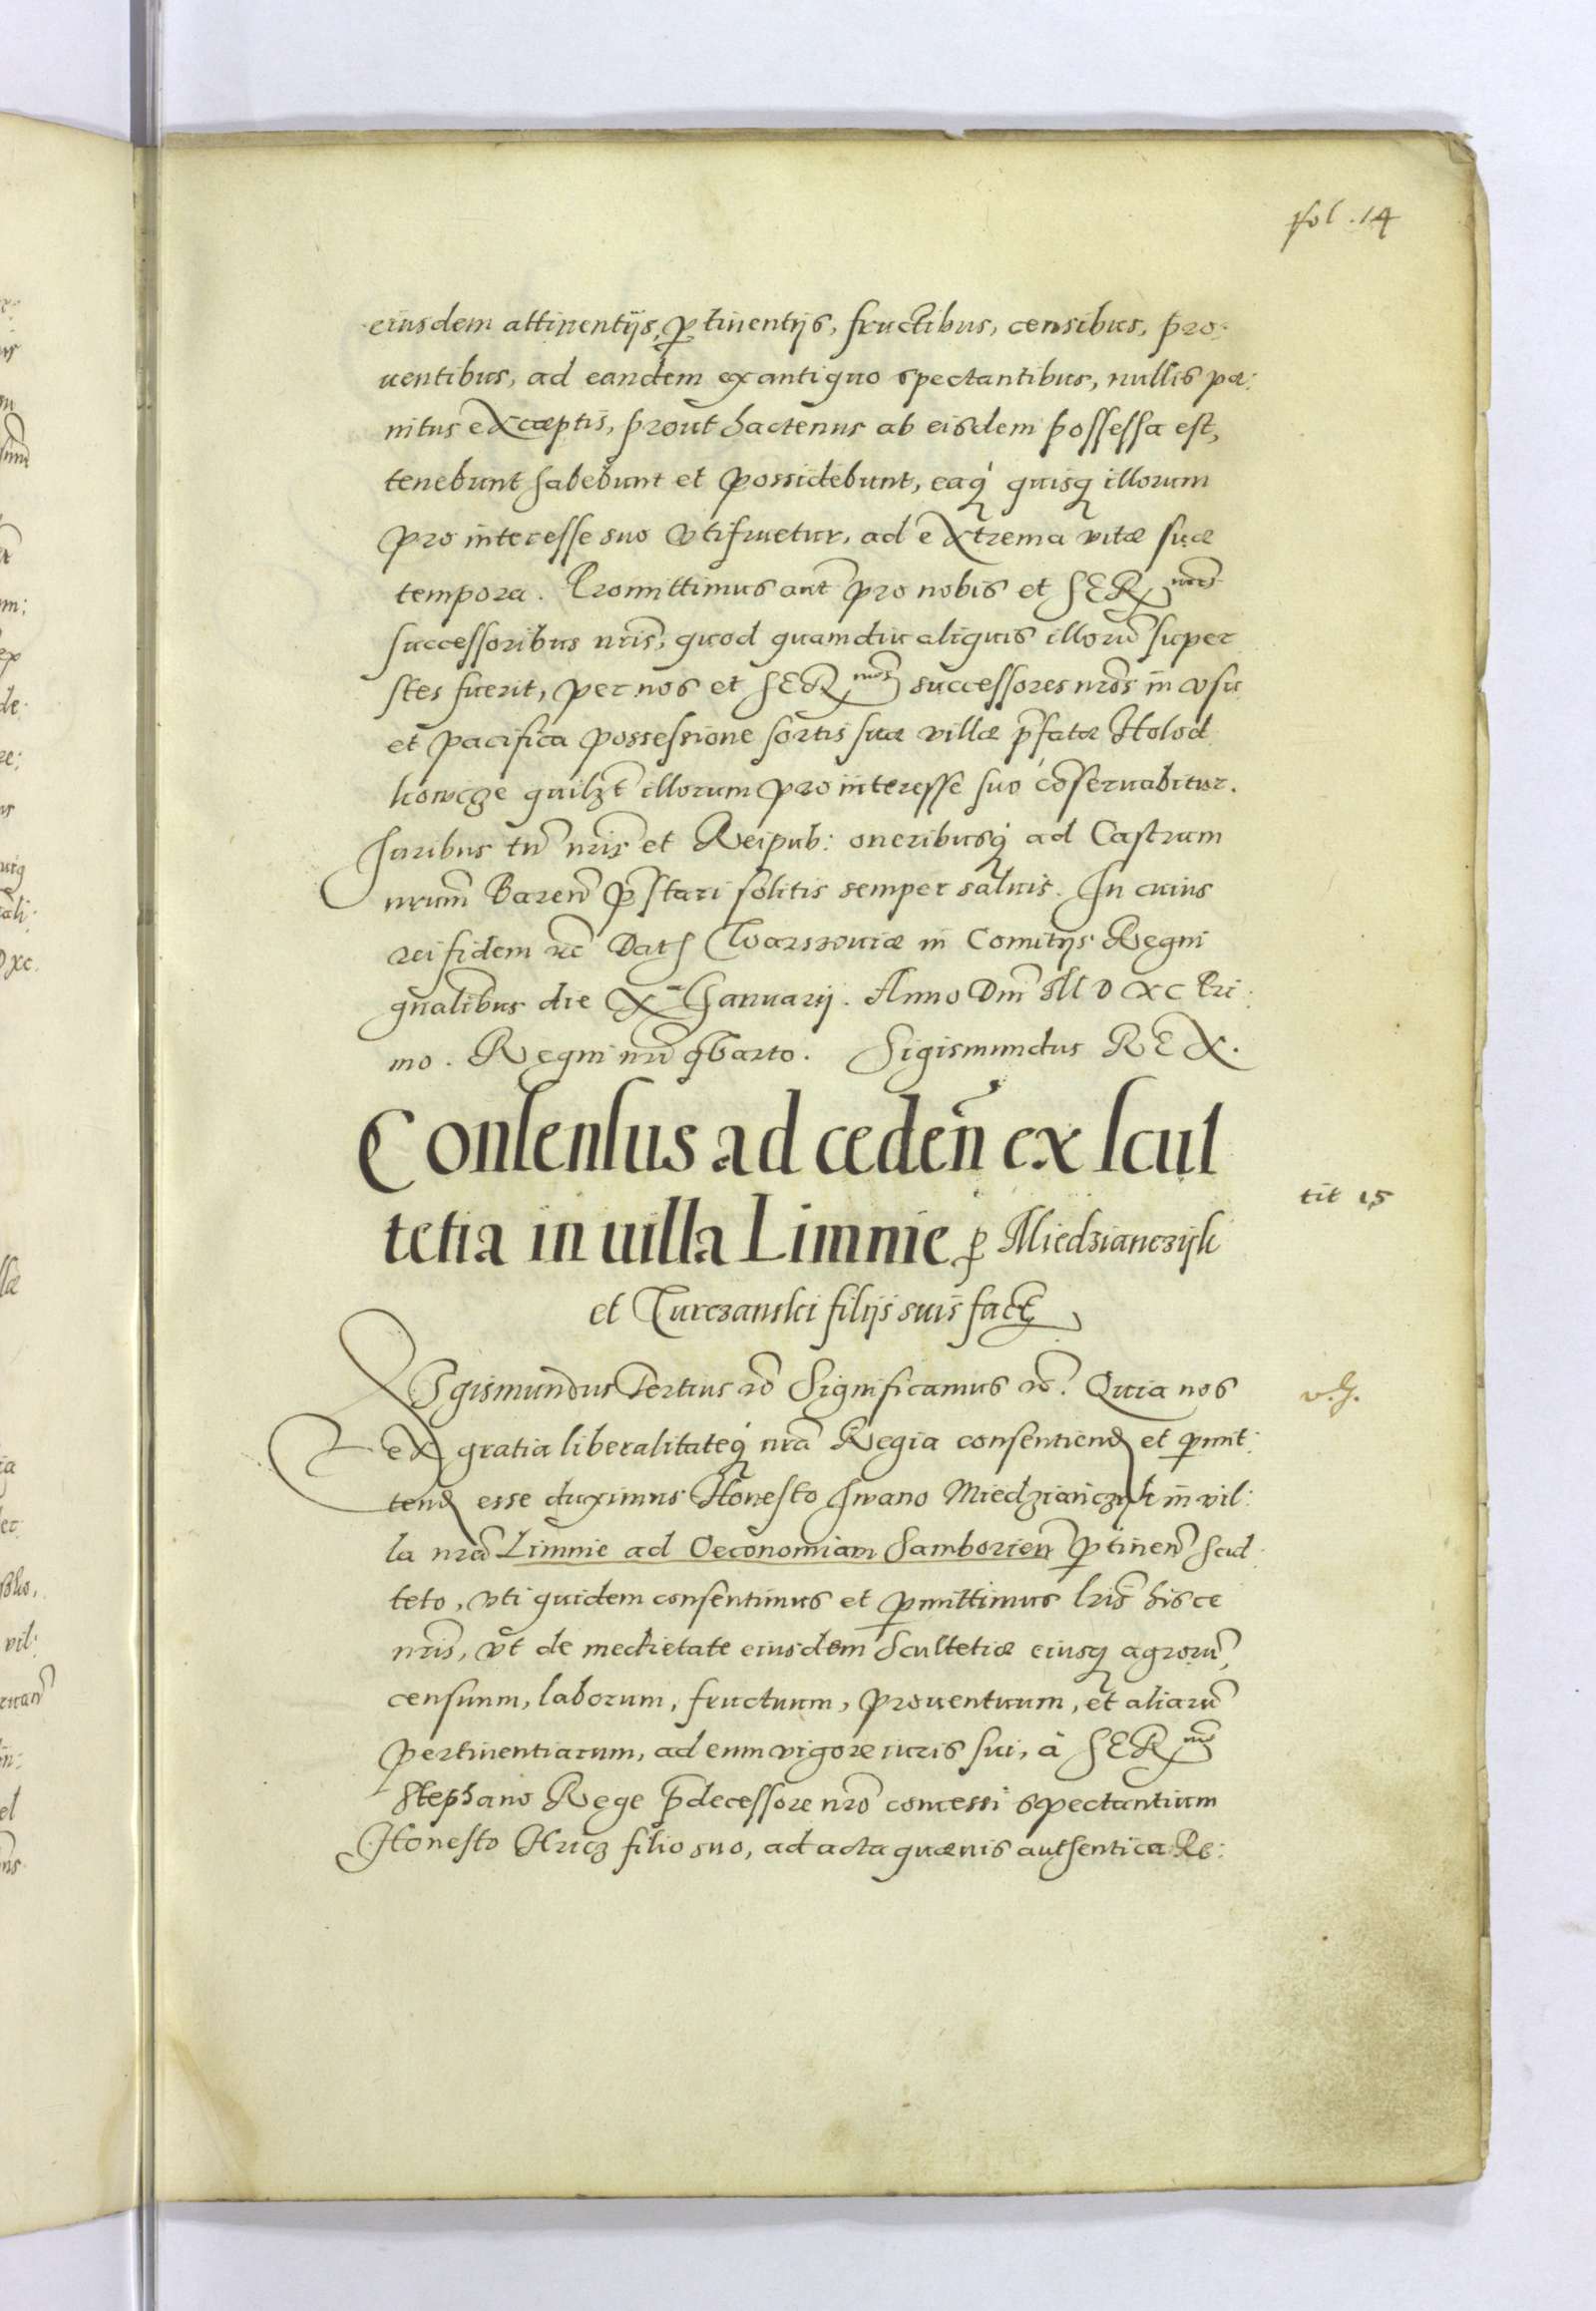 fol. 14
eiusdem attinentijs, ptinentijs, fructibus, censibus, pro:
uentibus, ad eandem ex antiquo spectantibus, nullis pœ:
nitus excœptis, prout hactenus ab eisdem possessa est,
tenebunt habebunt et possidebunt, eaq́ quisq illorum
pro interesse suo vtifruetur, ad extrema vitæ suæ
tempora. Promittimus aut̃ pro nobis et SER mis
successoribus nr̃is, quod quamdiu aliquis illorũ super
stes fuerit, per nos et SER mos successores nr̃os in vsu
et pacifica possessione sortis suæ villæ p̃fatæ Holod
kowcze quilzt̃ illorum pro interesse suo cõseruabitur.
Juribus tñ nr̃is et Reipub: oneribusq́ ad Castrum
nrum̃ Bareñ p̃stari solitis semper saluis. In cuius
rei fidem etc̃ Dat Warszouiæ in Comitijs Regni
gñalibus die X Januarij. Anno Dñi M D XC Pri:
mo. Regni nrĩ qvarto. Sigismundus REX.
Consensus ad cedeñ ex scul
tetia in uilla Limnie p Miedzianczijk
et Turczanski filijs suis fact
tit 15
Sigismundus Tertius etc̃ Significamus etc̃. Quia nos
v. g.
ex gratia liberalitateq́ nrã Regia consentiend et pmit:
tend esse duximus Honesto Iwano Miedzianczijk in vil:
la nrã Limnie ad Oeconomiam Samborieñ ptineñ scul
teto, vti quidem consentimus et pmittimus lr̃is hisce
nr̃is, vt de medietate eiusdem Scultetiæ eiusq agrorũ,
censuum, laborum, fructuum, prouentuum, et aliarũ
pertinentiarum, ad eum vigore iuris sui, à SER mo
Stephano Rege p̃decessore nrõ concessi spectantium
Honesto Hricz filio suo, ad acta quæuis authentica Re: